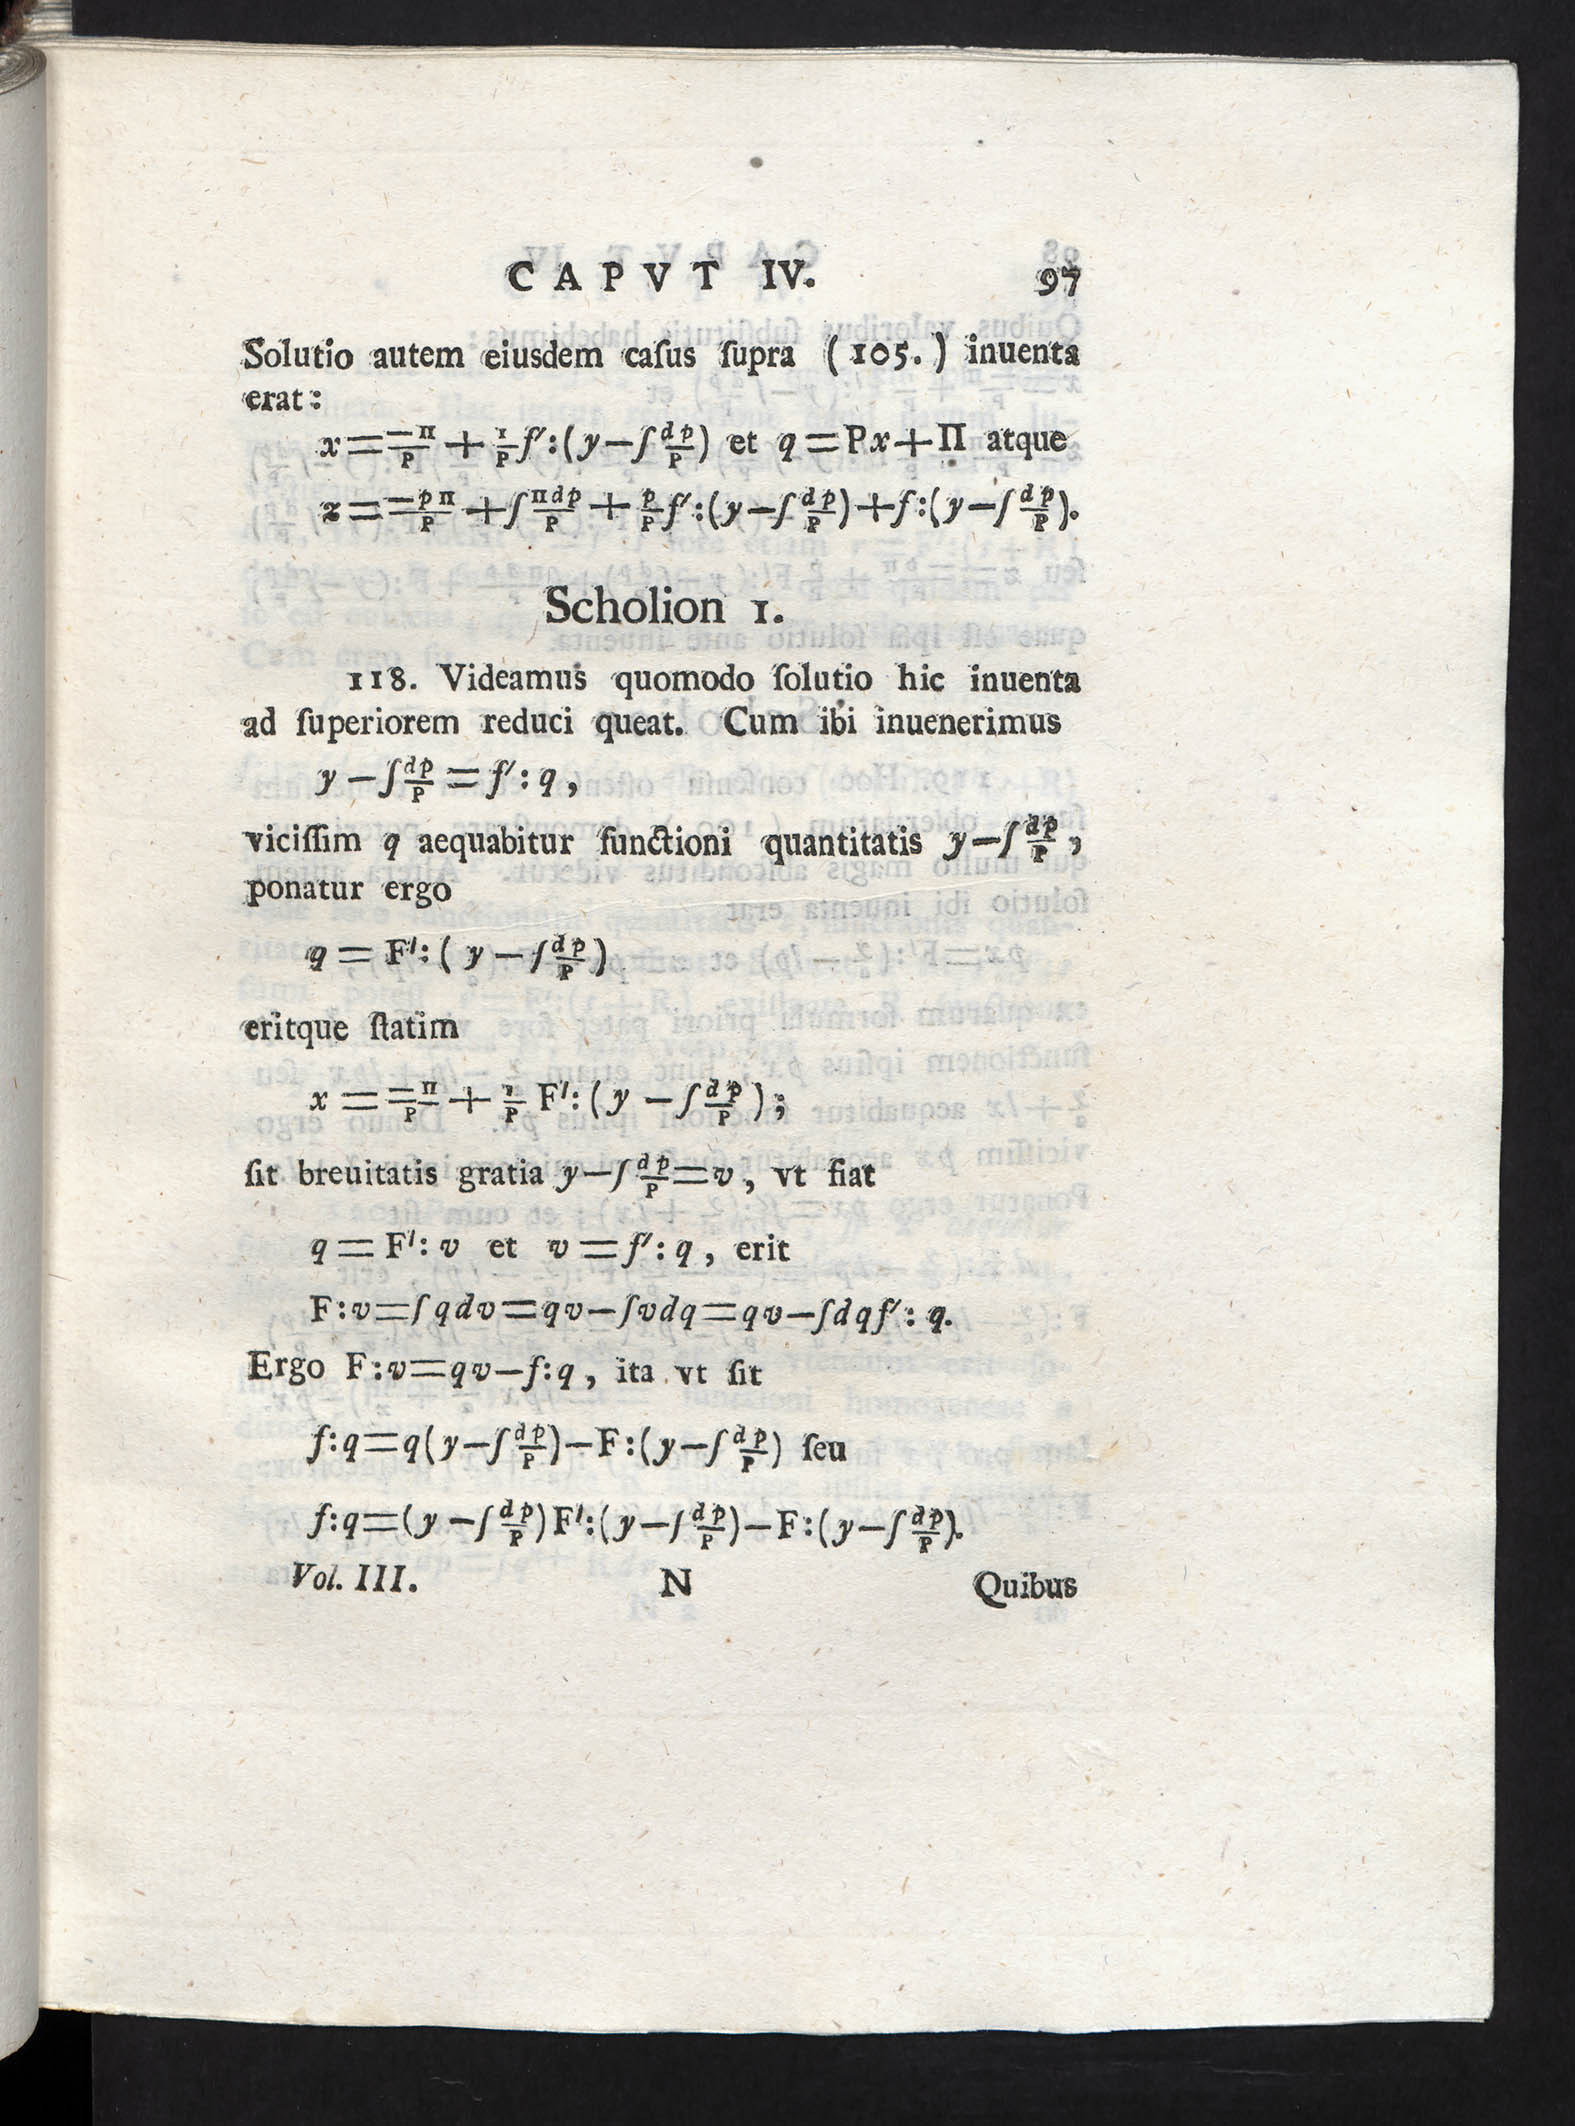 CAPVT IV. 97
Solutio autem eiusdem caſus ſupra (105.) inuenta
erat:
x = −Π/P + 1/P f′:(y − ∫dp/P) et q = Px + Π atque
z = −pΠ/P + ∫Πdp/P + p/P f′:(y − ∫dp/P) + f:(y − ∫dp/P).
Scholion 1.
118. Videamus quomodo ſolutio hic inuenta
ad ſuperiorem reduci queat. Cum ibi inuenerimus
y − ∫dp/P = f′: q,
viciſſim q aequabitur functioni quantitatis y − ∫dp/P,
ponatur ergo
q = F′: (y − ∫dp/P)
eritque ſtatim
x = −Π/P + 1/P F′: (y − ∫dp/P);
ſit breuitatis gratia y − ∫dp/P = v, vt fiat
q = F′: v et v = f′: q, erit
F:v = ∫qdv = qv − ∫vdq = qv − ∫dqf′: q.
Ergo F:v = qv − f:q, ita vt ſit
f:q = q(y − ∫dp/P) − F:(y − ∫dp/P) ſeu
f:q = (y − ∫dp/P)F′:(y − ∫dp/P) − F:(y − ∫dp/P).
Vol. III. N Quibus